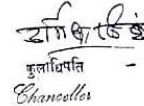 कुलाधिपति
Chancellor